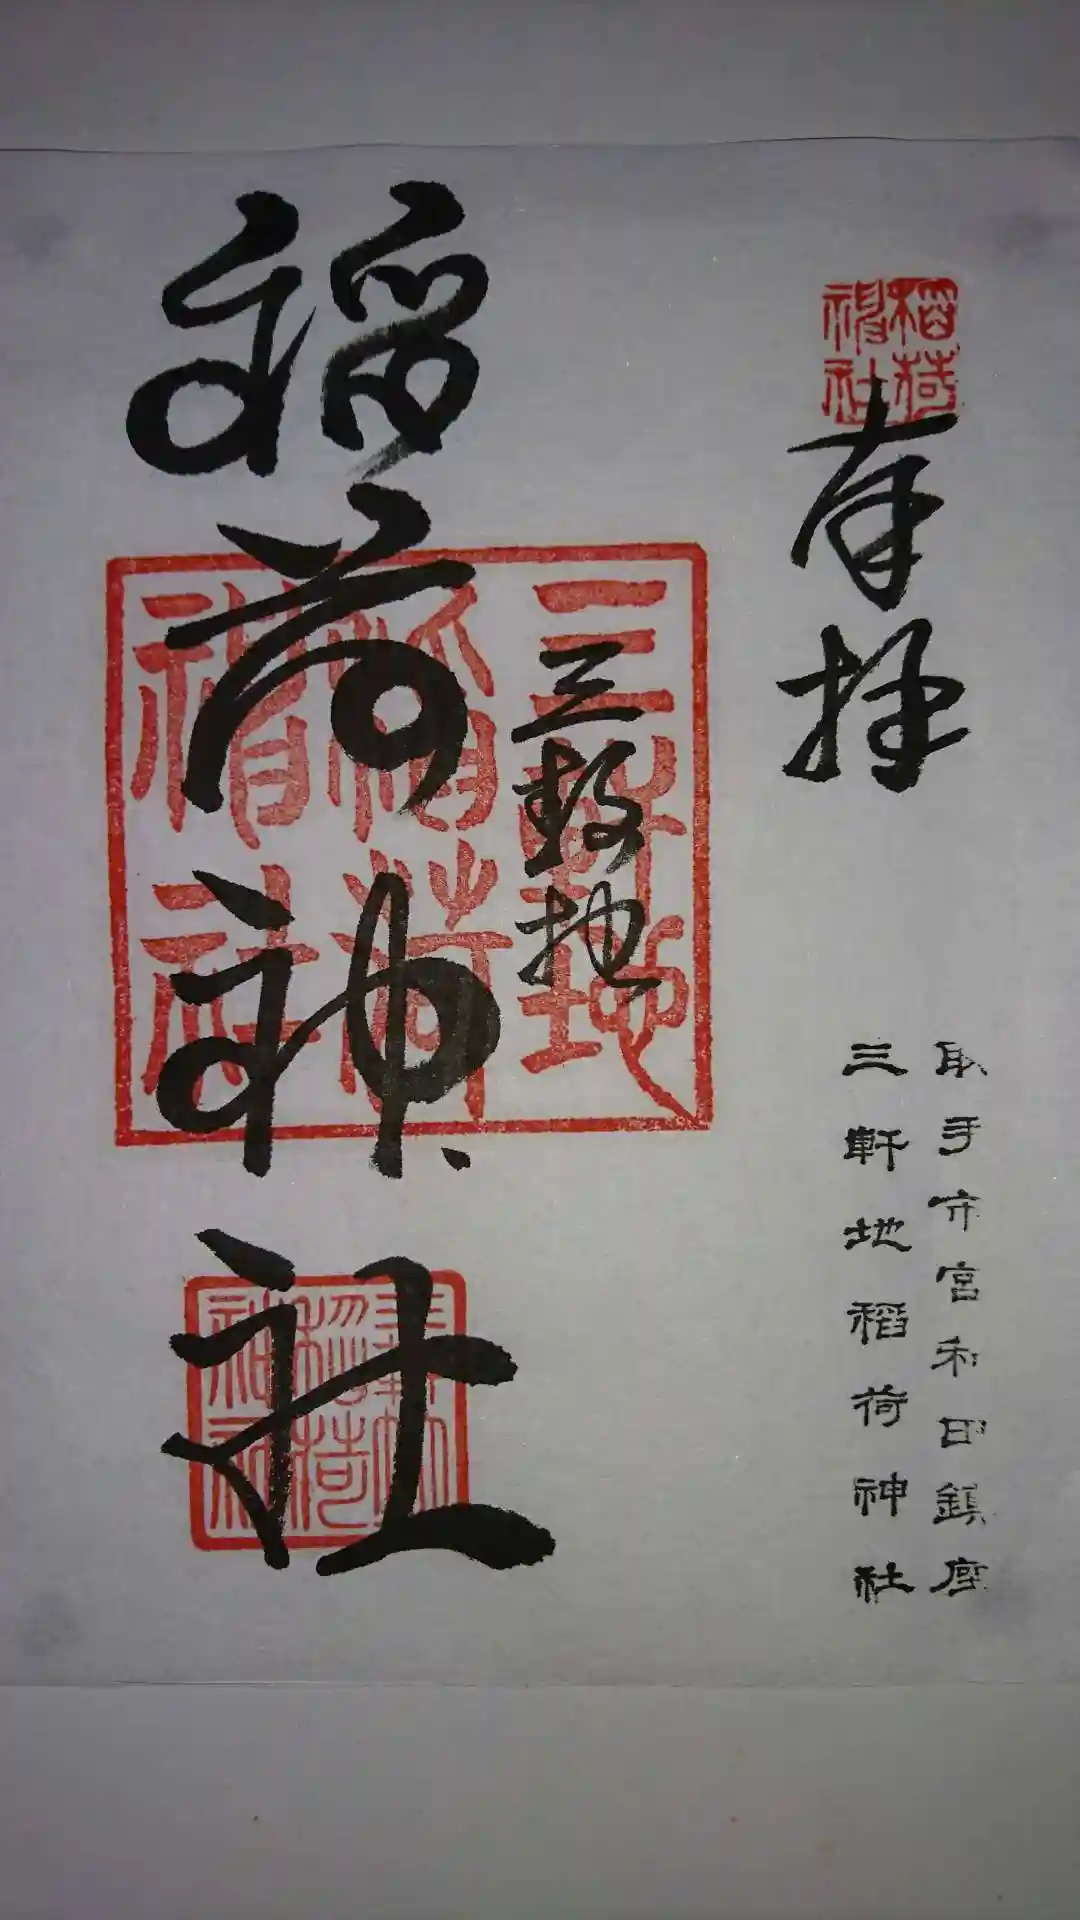 稲荷
神社
奉拝
取手市宮和田鎮座
三軒地稲荷神社
三軒地
三軒地
稲荷
神社
稲荷神社